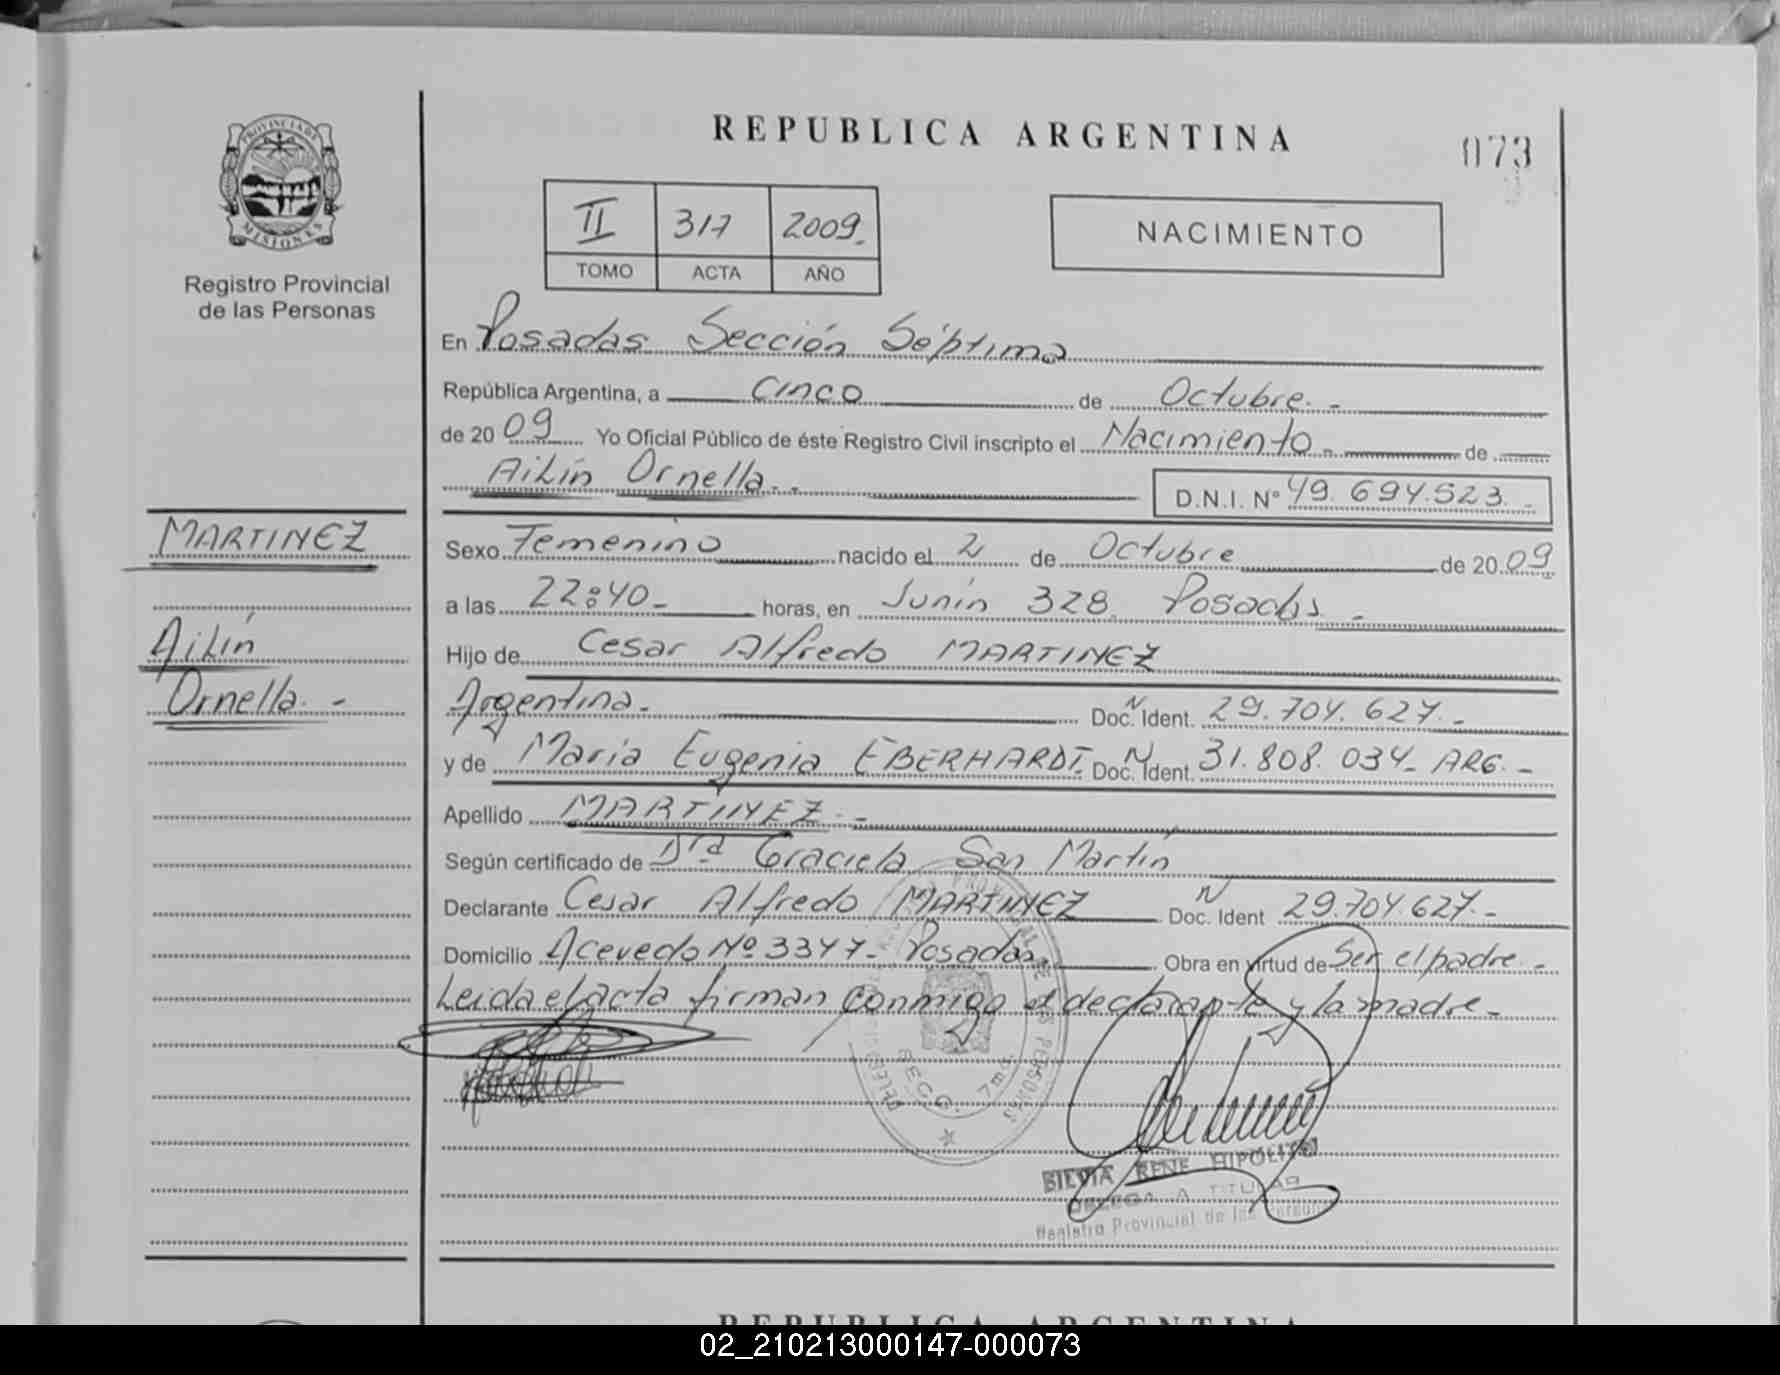 REPUBLICA ARGENTINA
073
PROVINCIA DE
MISIONES
Registro Provincial
de las Personas
II 317 2009.
TOMO ACTA AÑO
NACIMIENTO
En Posadas Sección Séptima
República Argentina, a cinco de Octubre. -
de 20 09 Yo Oficial Público de éste Registro Civil inscripto el Nacimiento - de
Ailín Ornella. - - D.N.I. N° 49.694.523. -
MARTINEZ
Ailín
Ornella. -
Sexo Femenino nacido el 2 de Octubre de 20 09
a las 22:40 - horas, en Junín 328. Posadas -
Hijo de Cesar Alfredo MARTINEZ
Argentina. - Doc. N Ident. 29.704.627. -
y de María Eugenia EBERHARDT. Doc. N Ident. 31.808.034 - ARG. -
Apellido MARTINEZ. -
Según certificado de Dra Graciela San Martín
Declarante Cesar Alfredo MARTINEZ Doc. N Ident 29.704.627. -
Domicilio Acevedo Nº 3347 - Posadas. Obra en virtud de Ser el padre. -
Leida el acta firman conmigo el declarante y la madre -
SECC. 7ma.
SILVIA RENE HIPOLITO
DELEGADA TITULAR
Registro Provincial de las Personas
REPUBLICA ARGENTINA
02_210213000147-000073